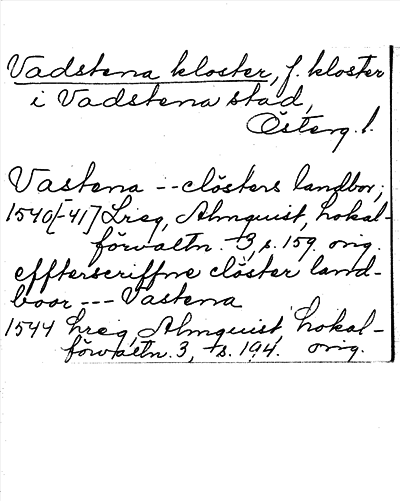 Vadstena kloster, f. kloster
i Vadstena stad,
Österg. l.
Vastena -- clösters landbor,
1540[-41] Lreg, Almquist, Lokal-
förvaltn. 3, s. 159. orig.
effterscriffne clöster land-
boor --- Vastena
1544 Lreg, Almquist, Lokal-
förvaltn. 3, s. 194. orig.